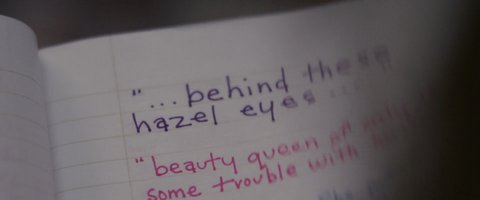 "...behind these
hazel eyes...
"beauty queen of
some trouble with